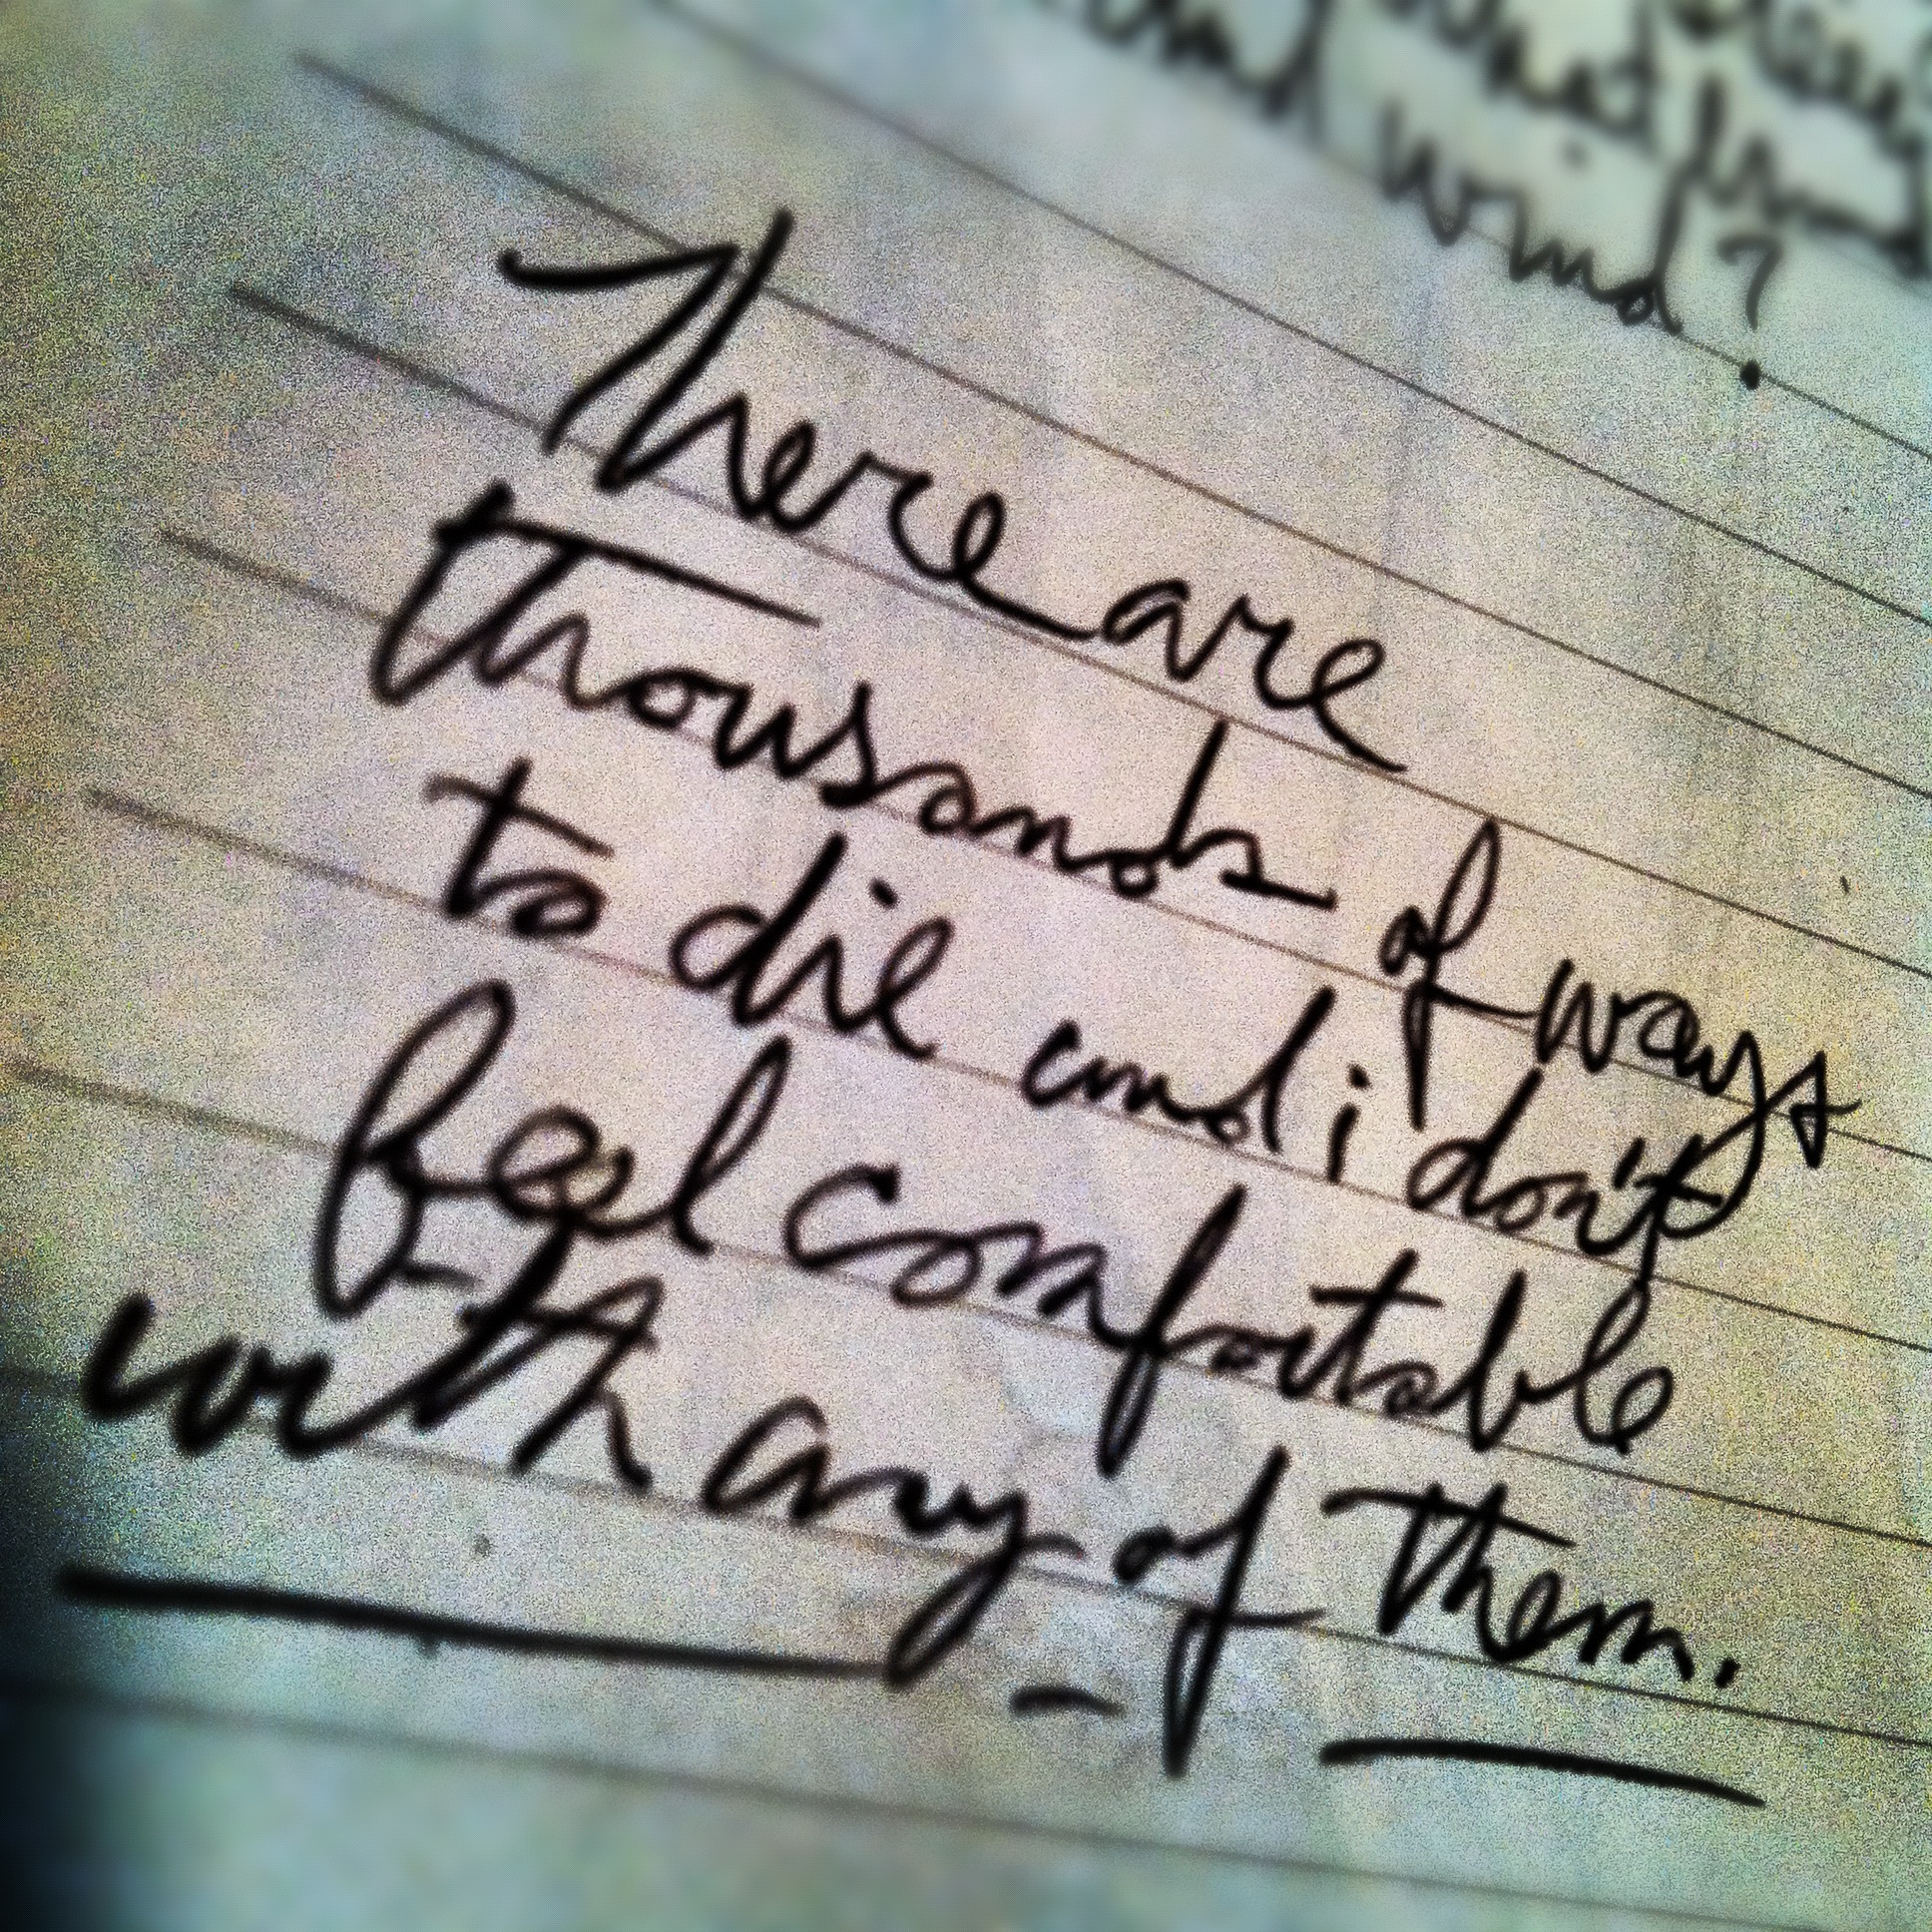 wind?
There are
thousands of ways
to die and i don't
feel comfortable
with any of them.